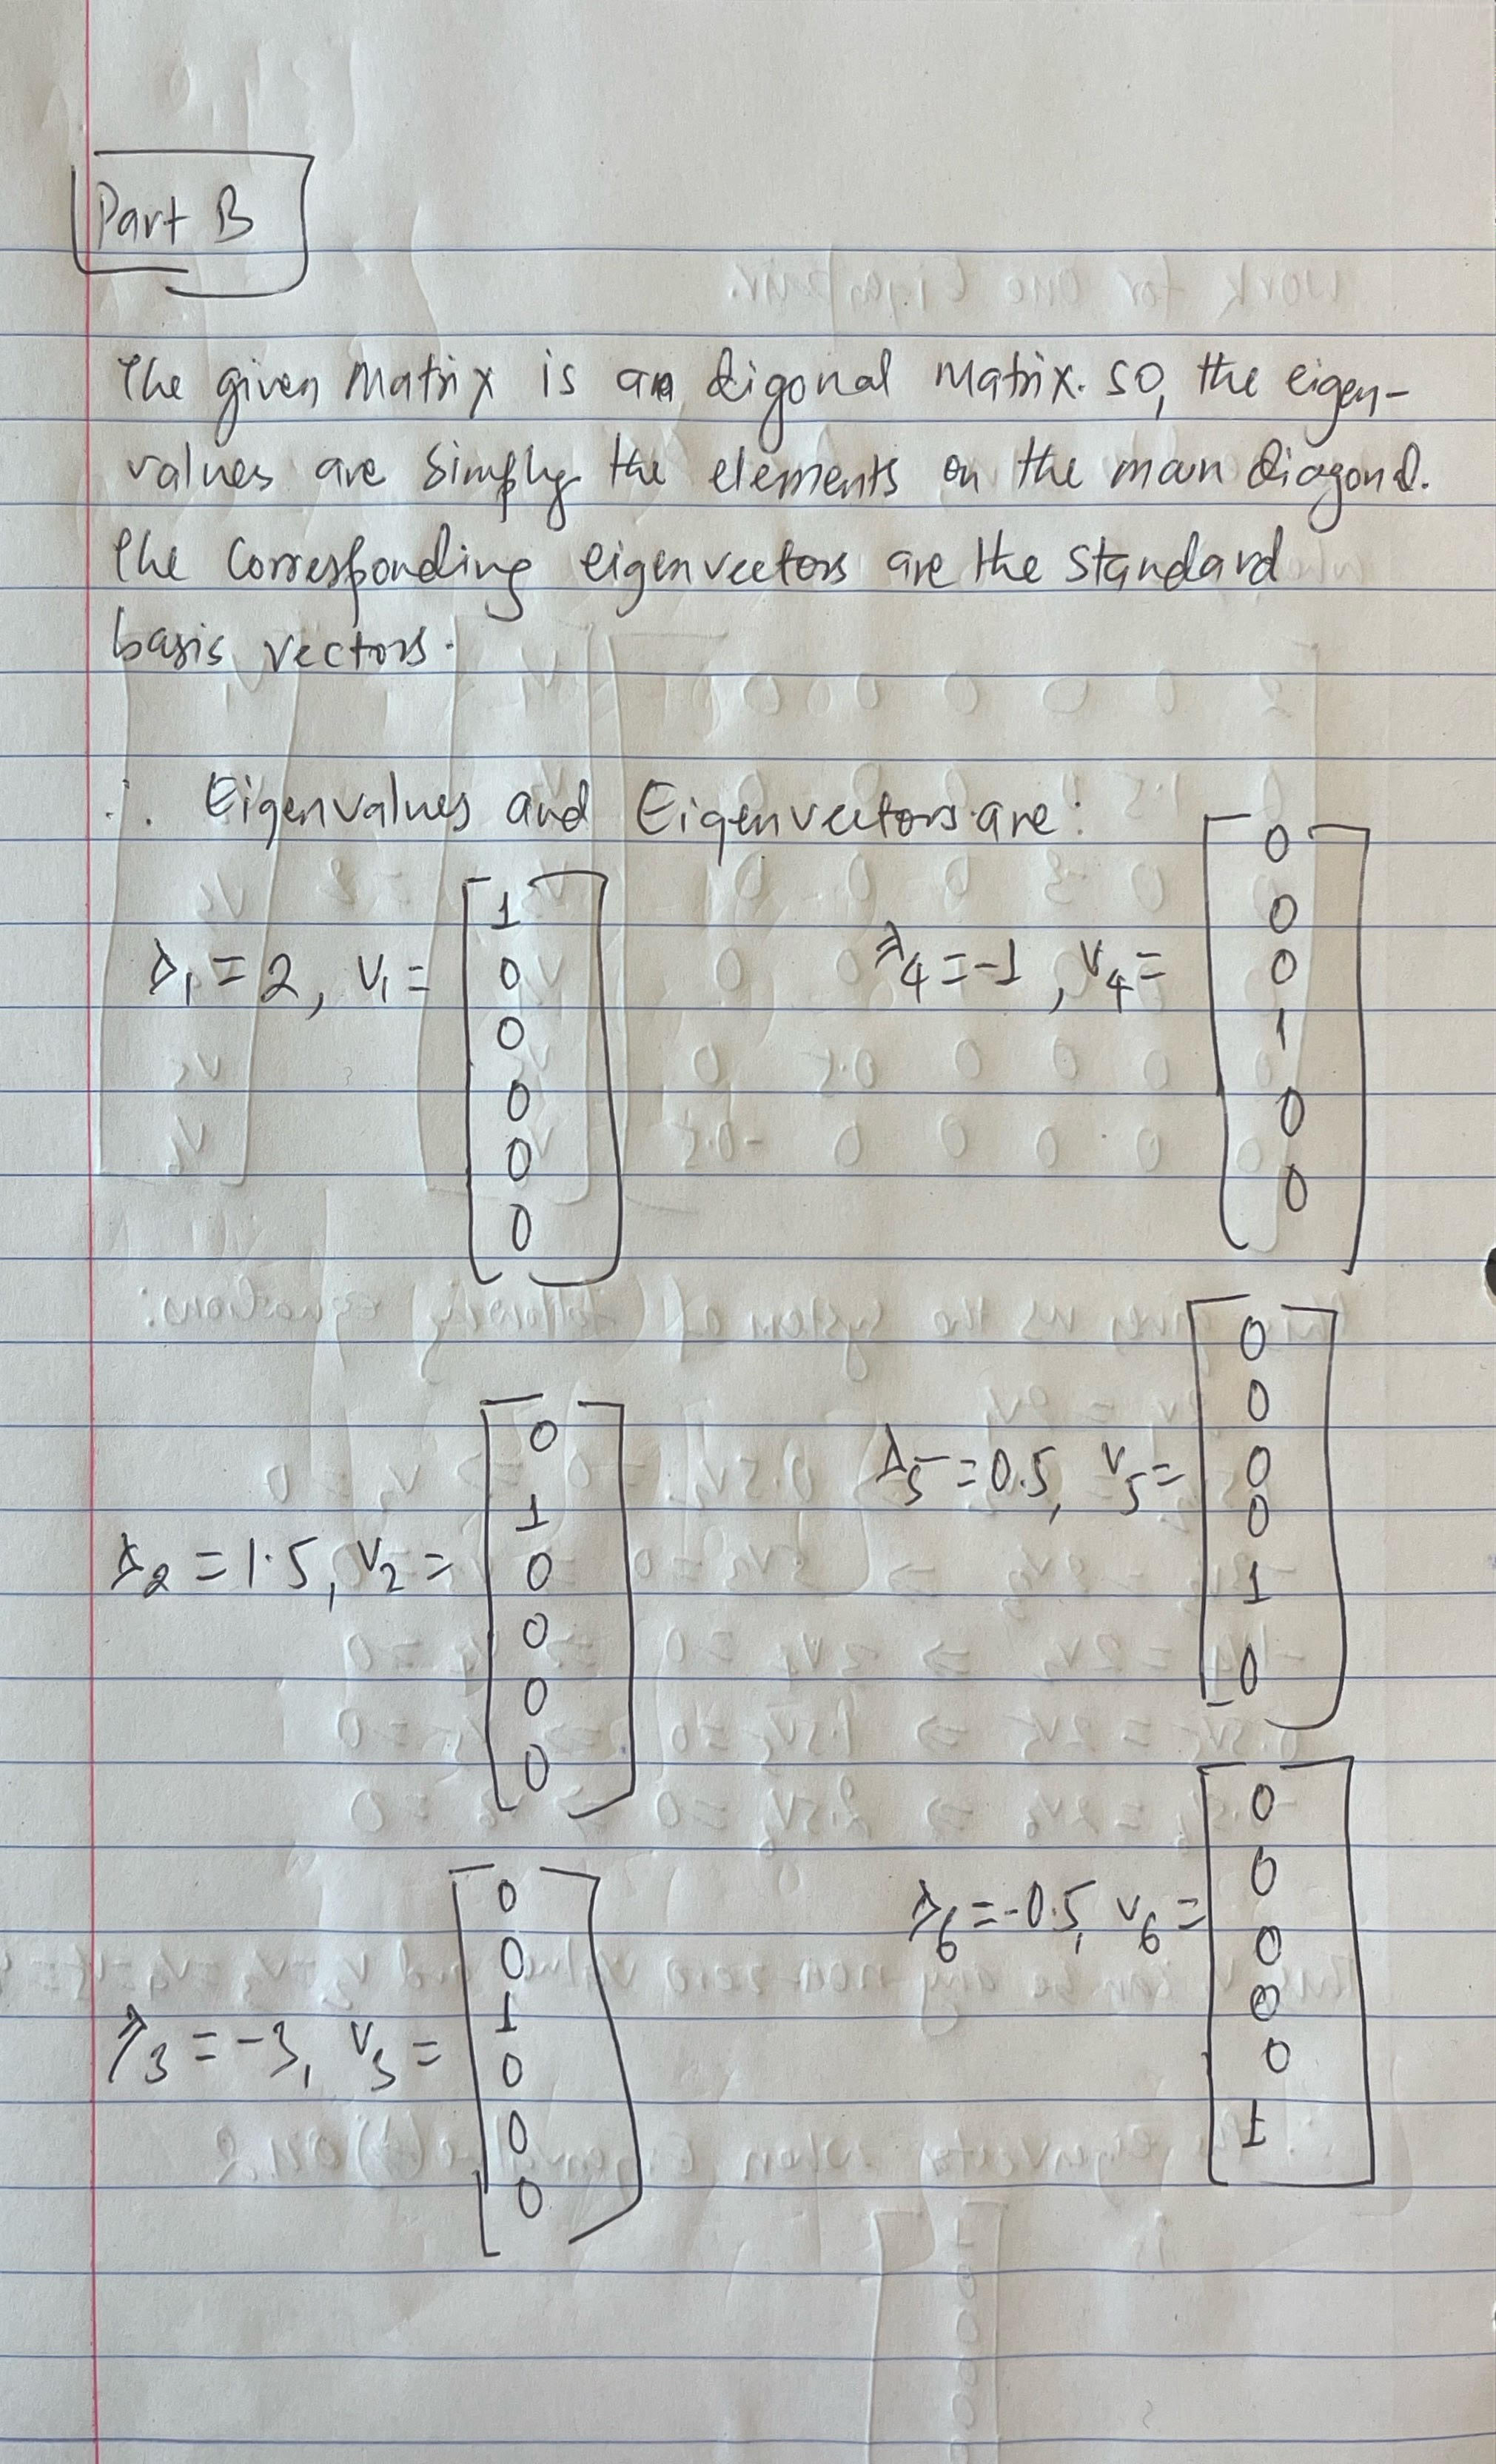 Part B
The given Matrix is an digonal matrix. so, the eigen-
values are simply the elements on the main diagonal.
The corresponding eigenvectors are the standard
basis vectors.
∴ Eigenvalues and Eigenvectors are:
λ1 = 2, v1 = [1 0 0 0 0 0]
λ2 = 1.5, v2 = [0 1 0 0 0 0]
λ3 = -3, v3 = [0 0 1 0 0 0]
λ4 = -1, v4 = [0 0 0 1 0 0]
λ5 = 0.5, v5 = [0 0 0 0 1 0]
λ6 = -0.5, v6 = [0 0 0 0 0 1]